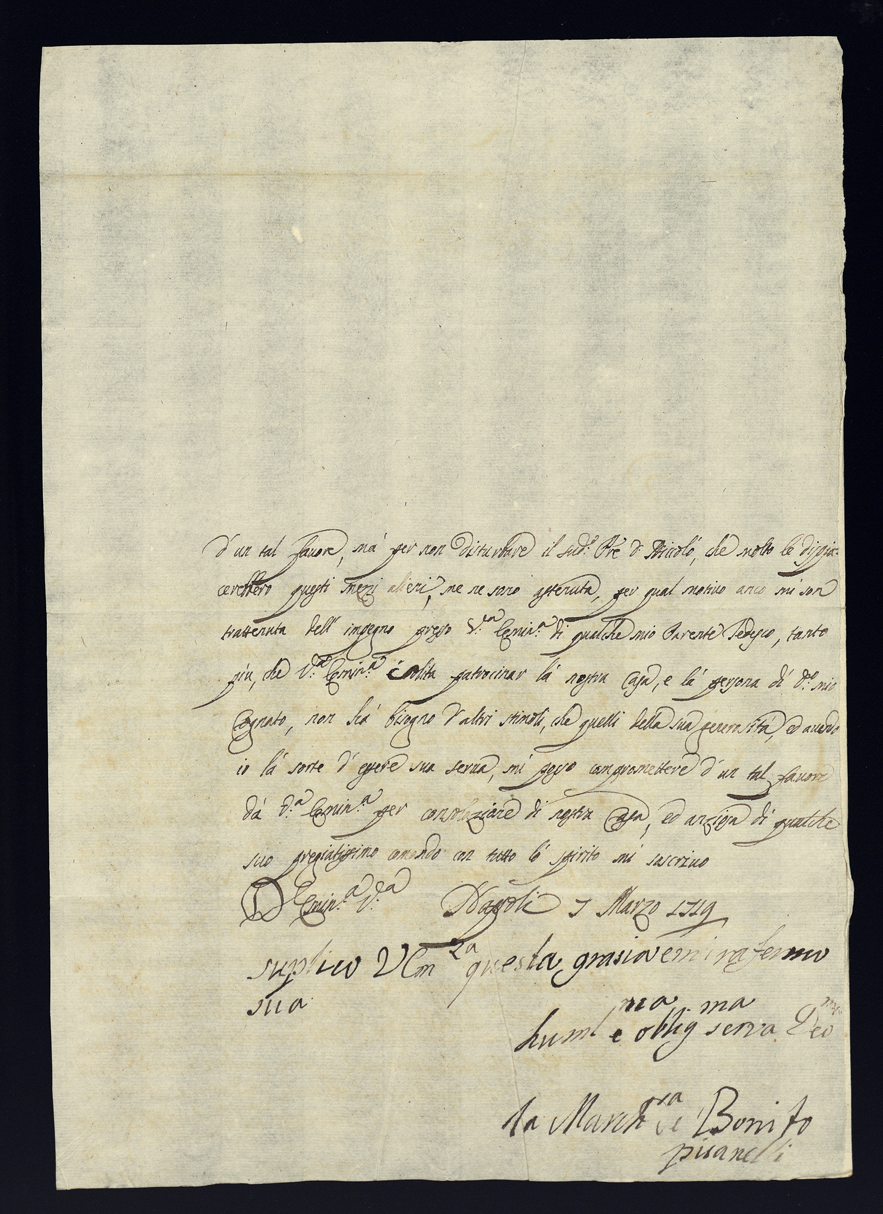 d'un tal favore, mà per non disturbare il sud.º Pré d. Nicolò, che molto le dispia-
cerebbero questi mezi alieni, me ne sono astenuta, per qual motivo anco mi son
trattenuta dell'impegno presso V.ra Emin.ª di qualche mio Parente Tedesco, tanto
più, che V.ra Emin.ª è solita patrocinar là nostra Casa, e là persona di d.º mio
Cognato, non hà bisogno d'altri stimoli, che quelli della sua generosità, ed avendo
io là sorte d'essere sua serva, mi posso compromettere d'un tal favore
dà V.ª Emin.ª per consolazione di nostra Casa, ed ansiosa di qualche
suo pregiatissimo comando con tutto lò spirito mi suscrivo
D Emin.ª V.ª Napoli 7 Marzo 1719
suplico V Em za questa grasia e mi rafermo
sua
huml ma e oblig ma serva
la March sa de Bonito
pisanelli